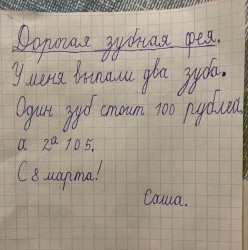 Дорогая зубная фея.
У меня выпали два зуба.
Один зуб стоит 100 рублей,
а 2а 105.
С 8 марта!
Саша.